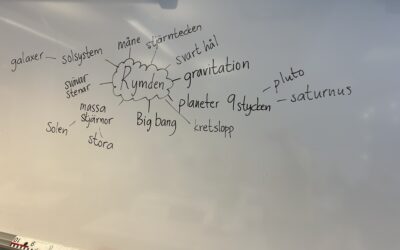 måne
stjärntecken
galaxer
solsystem
svart hål
Rymden
gravitation
stenar
pluto
planeter 9 stycken
saturnus
massa
stjärnor
Big bang
kretslopp
Solen
stora